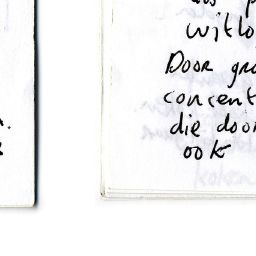 witlo
Door gro
concent
die door
ook